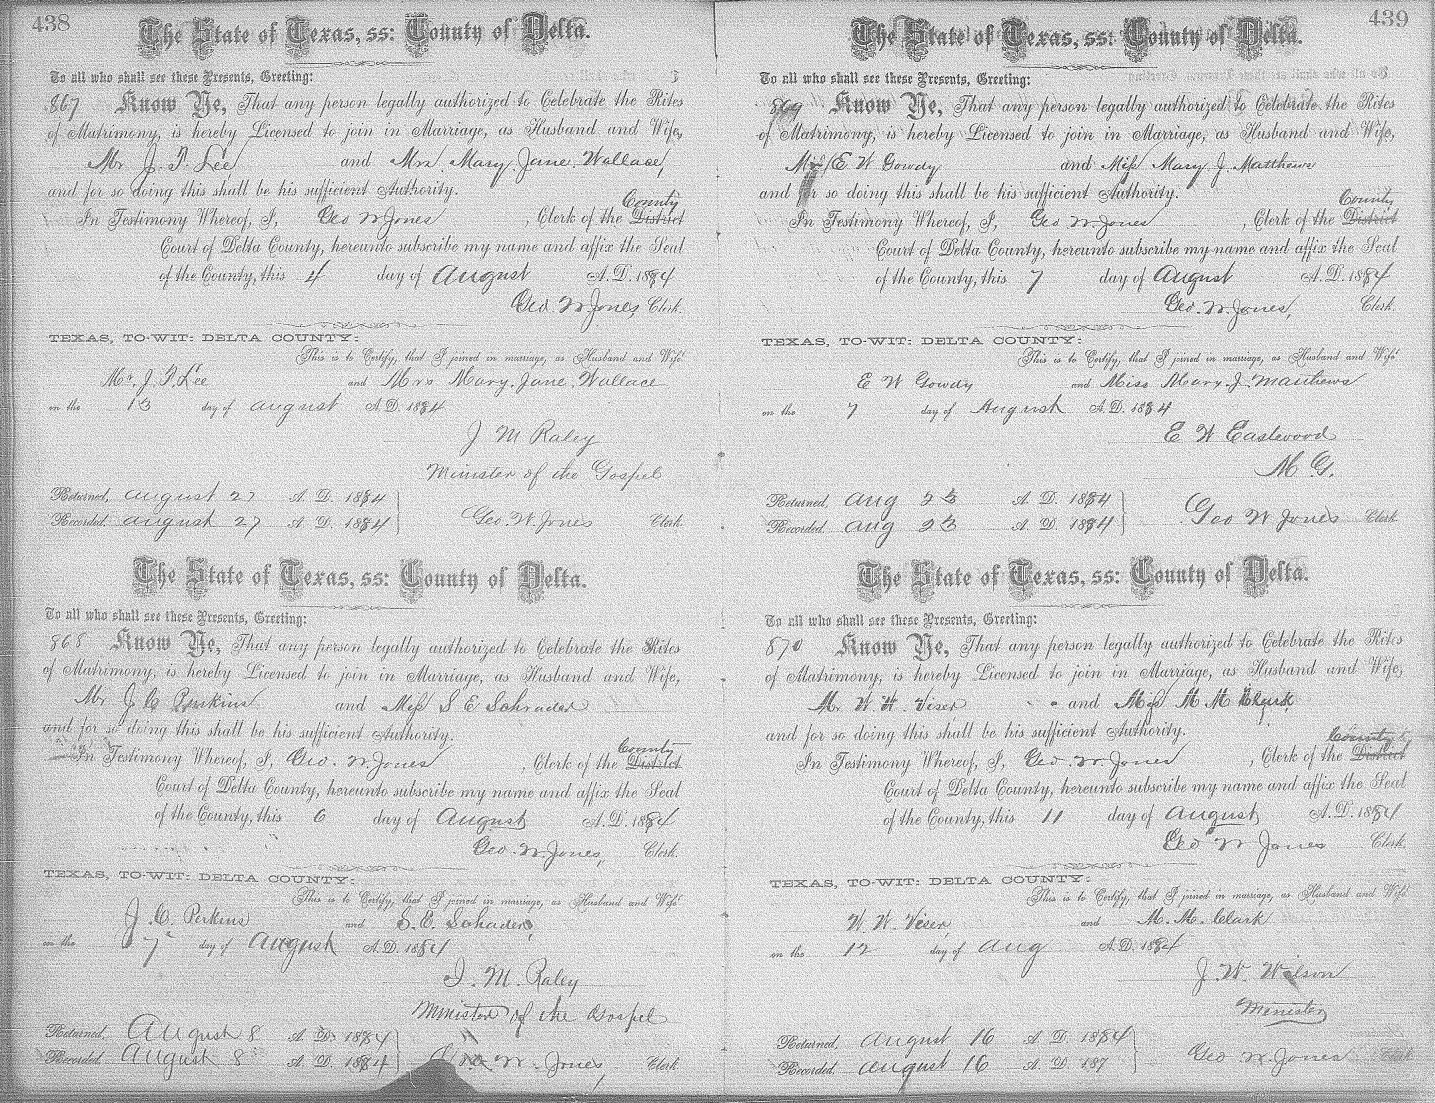 438
The State of Texas, ss: County of Delta.
To all who shall see these Presents, Greeting:
867 Know Ye, That any person legally authorized to Celebrate the Rites
of Matrimony, is hereby Licensed to join in Marriage, as Husband and Wife,
Mr J. F. Lee and Mrs Mary Jane Wallace,
and for so doing this shall be his sufficient Authority.
County
In Testimony Whereof, I, Geo W Jones, Clerk of the District
Court of Delta County, hereunto subscribe my name and affix the Seal
of the County, this 4 day of August A. D. 1884
Geo. W Jones, Clerk.
TEXAS, TO-WIT: DELTA COUNTY:
This is to Certify, that I joined in marriage, as Husband and Wife
Mr. J. F. Lee and Mrs Mary. Jane. Wallace
on the 13 day of august A. D. 1884
J M Raley
Minister of the Gospel
Returned, august 27 A. D. 1884
Recorded. august 27 A. D. 1884 Geo. W. Jones Clerk
The State of Texas, ss: County of Delta.
To all who shall see these Presents, Greeting:
868 Know Ye, That any person legally authorized to Celebrate the Rites
of Matrimony, is hereby Licensed to join in Marriage, as Husband and Wife,
Mr J C Perkins and Miss S E Schrader
and for so doing this shall be his sufficient Authority.
County
In Testimony Whereof, I, Geo. W Jones, Clerk of the District
Court of Delta County, hereunto subscribe my name and affix the Seal
of the County, this 6 day of August A. D. 1884
Geo. W. Jones, Clerk.
TEXAS, TO-WIT: DELTA COUNTY:
This is to Certify, that I joined in marriage, as Husband and Wife
J. C. Perkins and S. E. Schader,
on the 7 day of August A. D. 1884
J. M. Raley
Minister of the Gospel
Returned, August 8 A. D. 1884
Recorded. August 8 A. D. 1884 Geo W. Jones, Clerk
439
The State of Texas, ss: County of Delta.
To all who shall see these Presents, Greeting:
869 Know Ye, That any person legally authorized to Celebrate the Rites
of Matrimony, is hereby Licensed to join in Marriage, as Husband and Wife,
E W Gowdy and Miss Mary J. Matthews
and for so doing this shall be his sufficient Authority.
County
In Testimony Whereof, I, Geo W. Jones, Clerk of the District
Court of Delta County, hereunto subscribe my name and affix the Seal
of the County, this 7 day of August A. D. 1884
Geo. W. Jones, Clerk.
TEXAS, TO-WIT: DELTA COUNTY:
This is to Certify, that I joined in marriage, as Husband and Wife
E W Gowdy and Miss Mary. J. Matthews
on the 7 day of August A. D. 1884
E W Eastwood
M G.
Returned, Aug 23 A. D. 1884
Recorded. Aug 23 A. D. 1884 Geo W Jones Clerk
The State of Texas, ss: County of Delta.
To all who shall see these Presents, Greeting:
870 Know Ye, That any person legally authorized to Celebrate the Rites
of Matrimony, is hereby Licensed to join in Marriage, as Husband and Wife,
Mr W. W. Viser and Miss M M Clark
and for so doing this shall be his sufficient Authority.
County
In Testimony Whereof, I, Geo. W. Jones, Clerk of the District
Court of Delta County, hereunto subscribe my name and affix the Seal
of the County, this 11 day of August A. D. 1884
Geo W Jones Clerk.
TEXAS, TO-WIT: DELTA COUNTY:
This is to Certify, that I joined in marriage, as Husband and Wife
W. W. Viser and M. M. Clark
on the 12 day of aug A. D. 1884
J. W. Wilson
Menister
Returned, august 16 A. D. 1884
Recorded. august 16 A. D. 187 Geo W. Jones Clerk